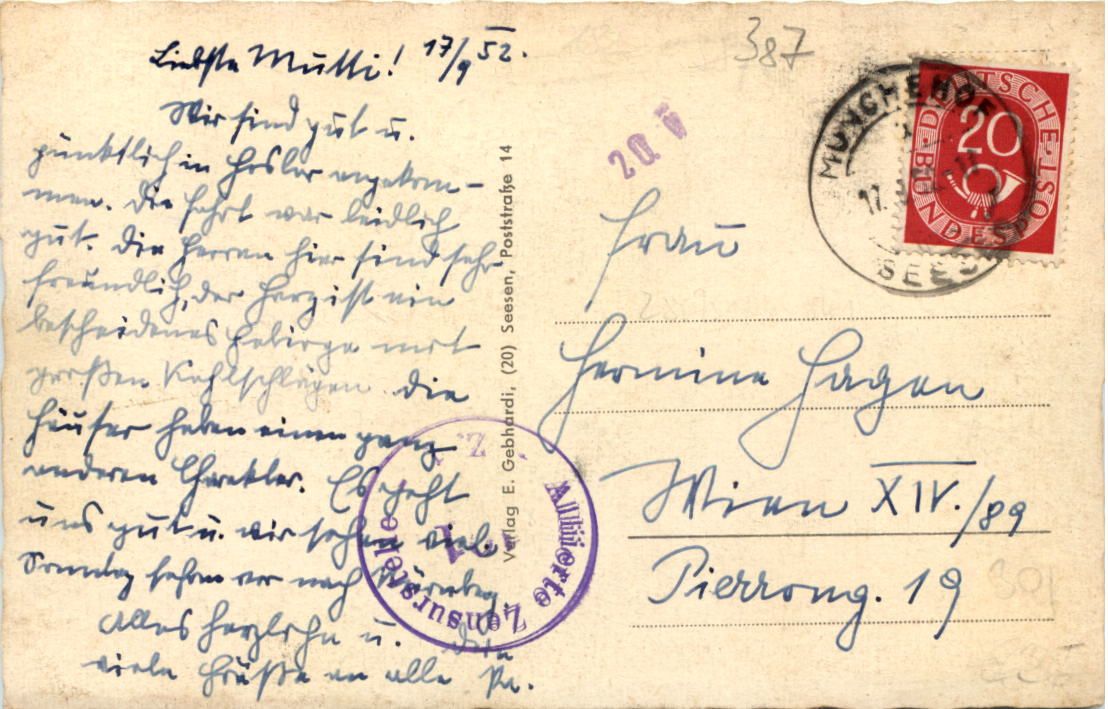 Liebste Mutti! 17/9 52.
Wir sind gut u.
pünktlich in Goslar angekom-
men. Die Fahrt war leidlich
gut. Die Herren hier sind sehr
freundlich, der Harz ist ein
bescheidenes Gebirge mit
großen Kahlschlägen. Die
Häuser haben einen ganz
anderen Charakter. Es geht
uns gut u. wir sehen viel.
Sonntag fahren wir nach Nürnberg.
Alles Herzliche u.
viele Grüße an alle
Verlag E. Gebhardi, (20) Seesen, Poststraße 14
387
20
MÜNCHEHOF
SEESEN
DEUTSCHE BUNDESPOST
20
Frau
Hermine Hagen
Wien XIV./89
Pierrong. 19
Alliierte Zensurstelle